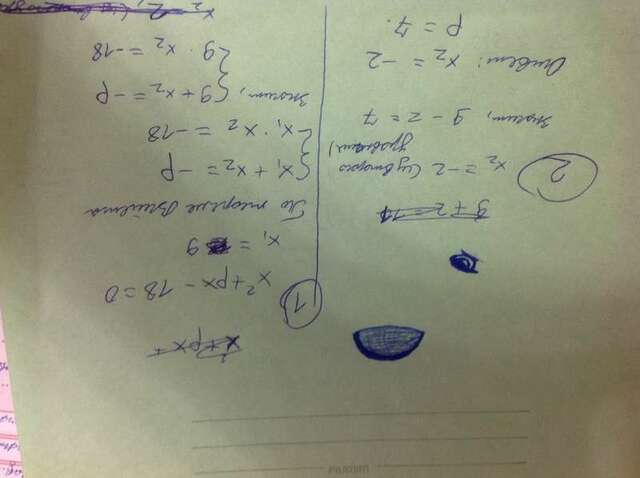 x² + px +
① x² + px - 18 = 0
x₁ = 9
По теореме Виета
{ x₁ + x₂ = -p
x₁ · x₂ = -18
значит, { 9 + x₂ = -p
9 · x₂ = -18
9 + 2 = 11
② x₂ = -2 (из второго
уравнения)
значит, 9 - 2 = 7
Ответ: x₂ = -2
p = 7.